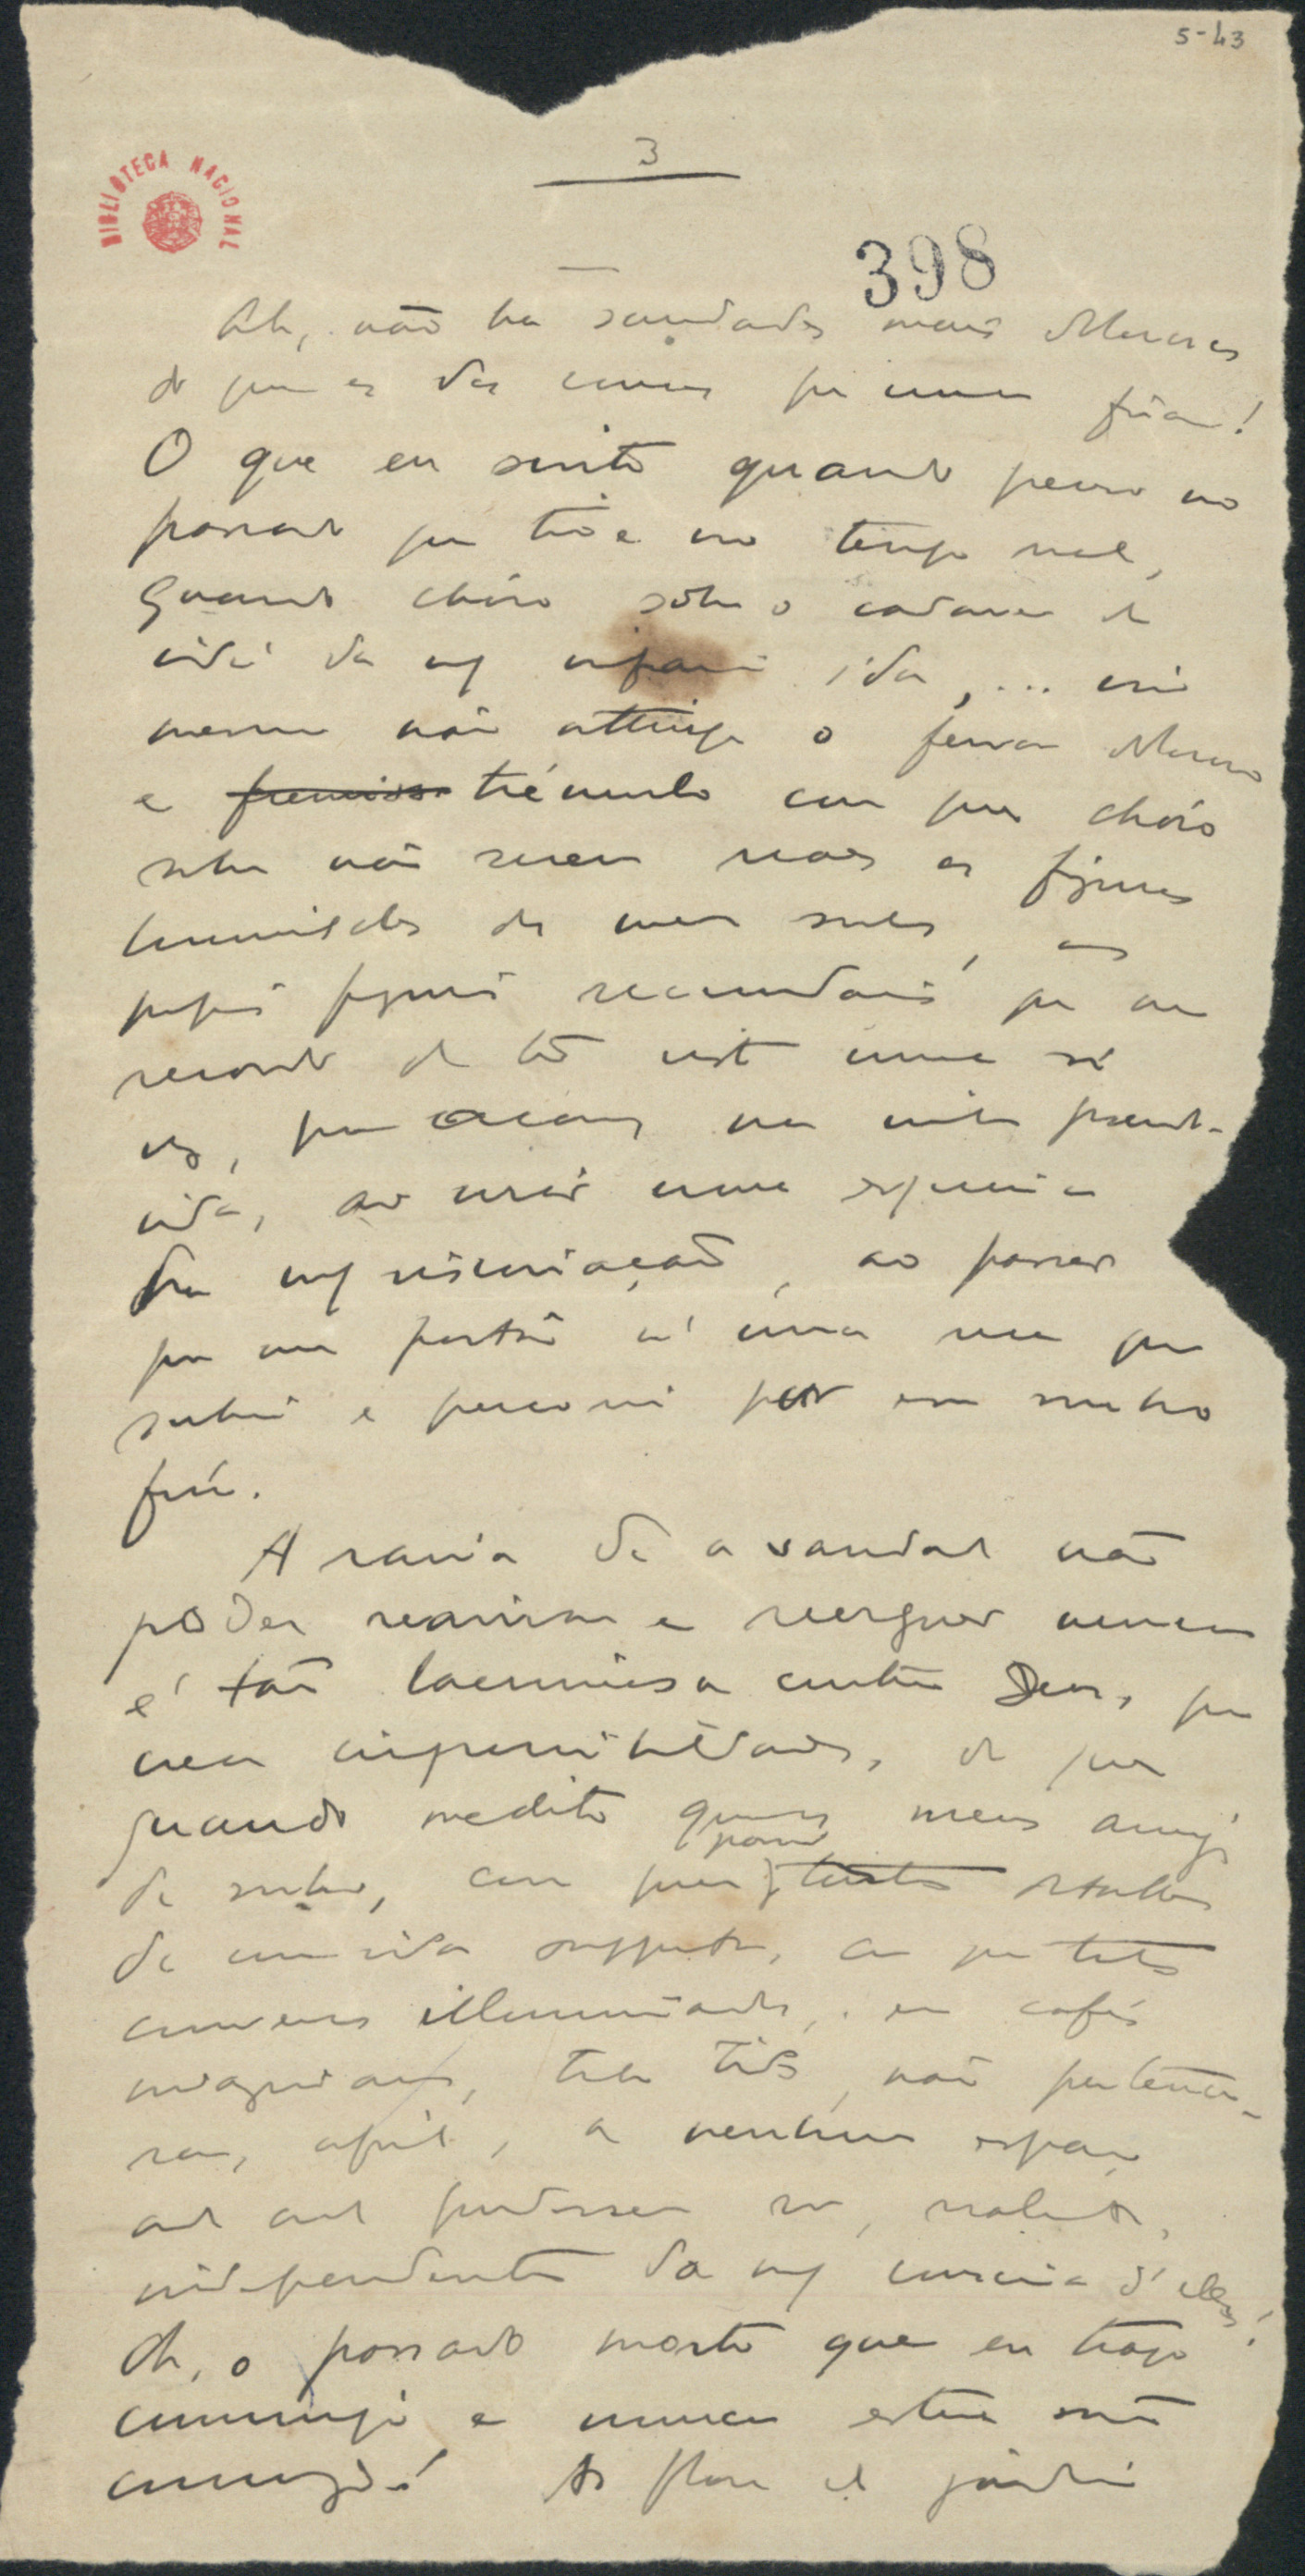 5-43
3
BIBLIOTECA NACIONAL
398
Ah, não ha saudades mais dolorosas
do que as das cousas que nunca foram!
O que eu sinto quando penso no
passado que tive no tempo real,
quando chóro sobre o cadaver da
vida da m/ infancia ida,... isso
mesmo não attinge o fervor doloroso
e fremisso trémulo com que chóro
sobre não serem reaes as figuras
humildes dos meus sonhos, as
proprias figuras secundarias que me
recordo de ter visto uma só
vez, por acaso, na minha pseudo-
vida, ao virar uma esquina
da m/ visionação, ao passar
por um portão n'uma rua que
subi e percorri por esse sonho
fóra.
A raiva de a saudade não
poder reavivar e reerguer nunca
é tão lacrimosa contra Deus, que
creou impossibilidades, do que
quando medito que os meus amigos
de sonho, com quem passei tantos detalhes
de uma vida supposta, com quem tantas
conversas illuminadas, em cafés
imaginarios, tenho tido, não pertence-
ram, afinal, a nenhum espaço
onde pudessem ser, realmente,
independentes da m/ consciencia d'elles!
Oh, o passado morto que eu trago
commigo e nunca esteve senão
commigo! As flores do jardim